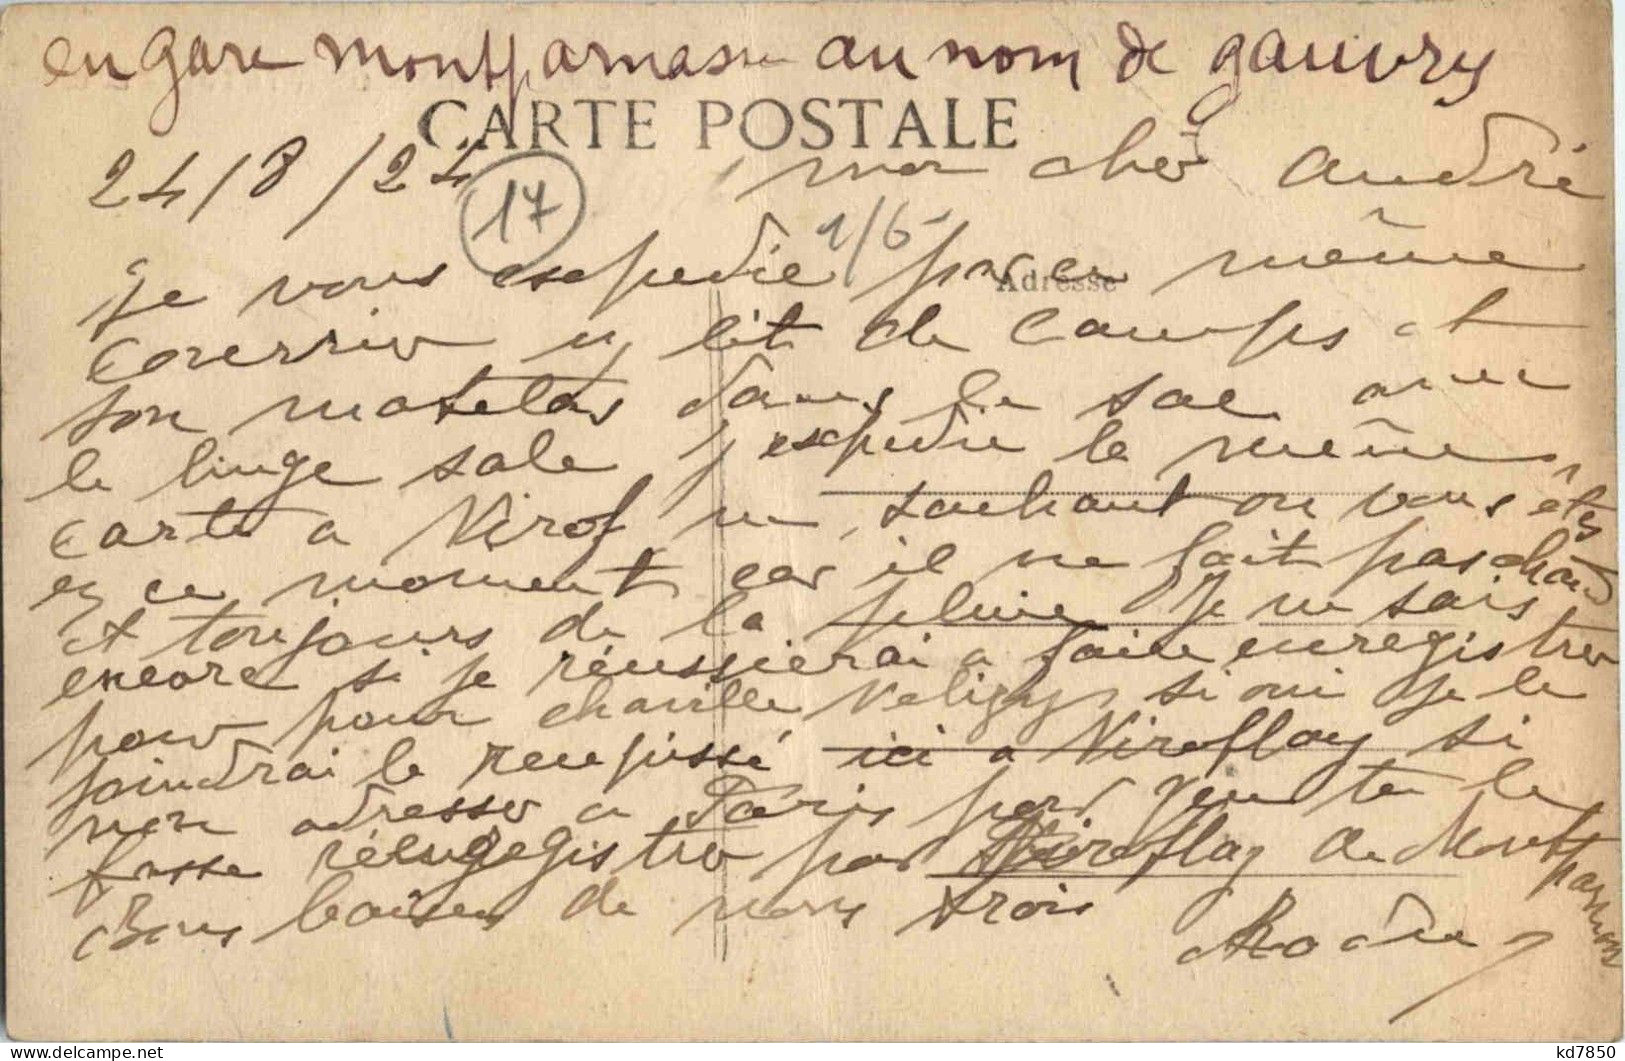 en gare montparnasse au nom de gauvry
CARTE POSTALE
24/8/24 mon cher André
17
1/6-
Adresse
Je vous expedie par même
courrier lit de camps et
son matelas dans le sac avec
le linge sale j'expedie la même
carte a Virof ne sachant ou vous êtes
en ce moment car il ne fait pas chaud
et toujours de la pluie Je ne sais
encore si je réussierai a faire enregistrer
pour chaville Veligy si oui je le
joindrai le recepissé ici a Viroflay si
non adresser a Paris la
fasse rélugegistrer par Viroflay a Montparnasse
Bons baisers de nous trois
kd7850